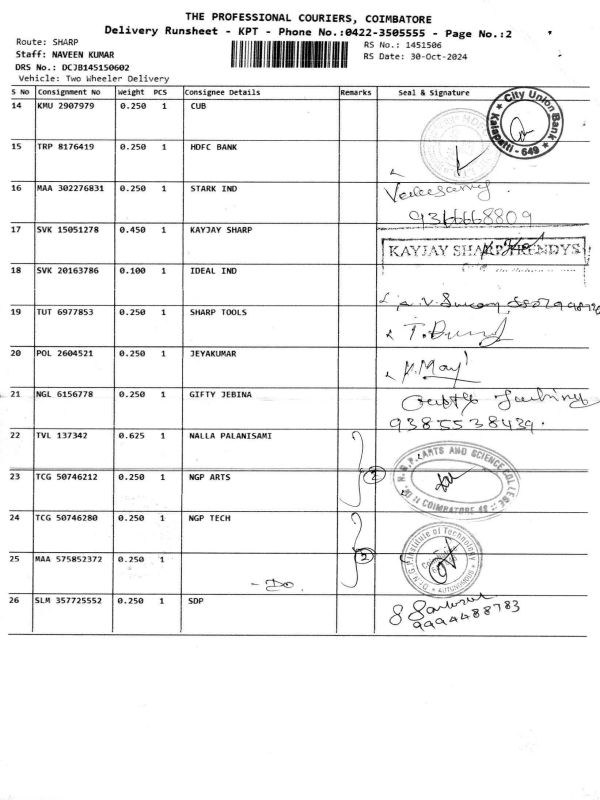 THE PROFESSIONAL COURIERS, COIMBATORE
Delivery Runsheet - KPT - Phone No.:0422-3505555 - Page No.:2
Route: SHARP
RS No.: 1451506
Staff: NAVEEN KUMAR
RS Date: 30-Oct-2024
DRS No.: DCJB145150602
Vehicle: Two Wheeler Delivery
S No Consignment No Weight PCS Consignee Details Remarks Seal & Signature
14 KMU 2907979 0.250 1 CUB
City Union Bank
Kalapatti - 649
15 TRP 8176419 0.250 1 HDFC BANK
16 MAA 302276831 0.250 1 STARK IND
9366668809
17 SVK 15051278 0.450 1 KAYJAY SHARP
KAYJAY SHARP TRENDYS
18 SVK 20163786 0.100 1 IDEAL IND
19 TUT 6977853 0.250 1 SHARP TOOLS
20 POL 2604521 0.250 1 JEYAKUMAR
K.May
21 NGL 6156778 0.250 1 GIFTY JEBINA
9385538439.
22 TVL 137342 0.625 1 NALLA PALANISAMI
23 TCG 50746212 0.250 1 NGP ARTS 2
DR. N.G.P. ARTS AND SCIENCE COLLEGE
COIMBATORE 48
24 TCG 50746280 0.250 1 NGP TECH
25 MAA 575852372 0.250 1 2
Dr. N.G.P. Institute of Technology
AUTONOMOUS
- Do.
26 SLM 357725552 0.250 1 SDP
9994488783